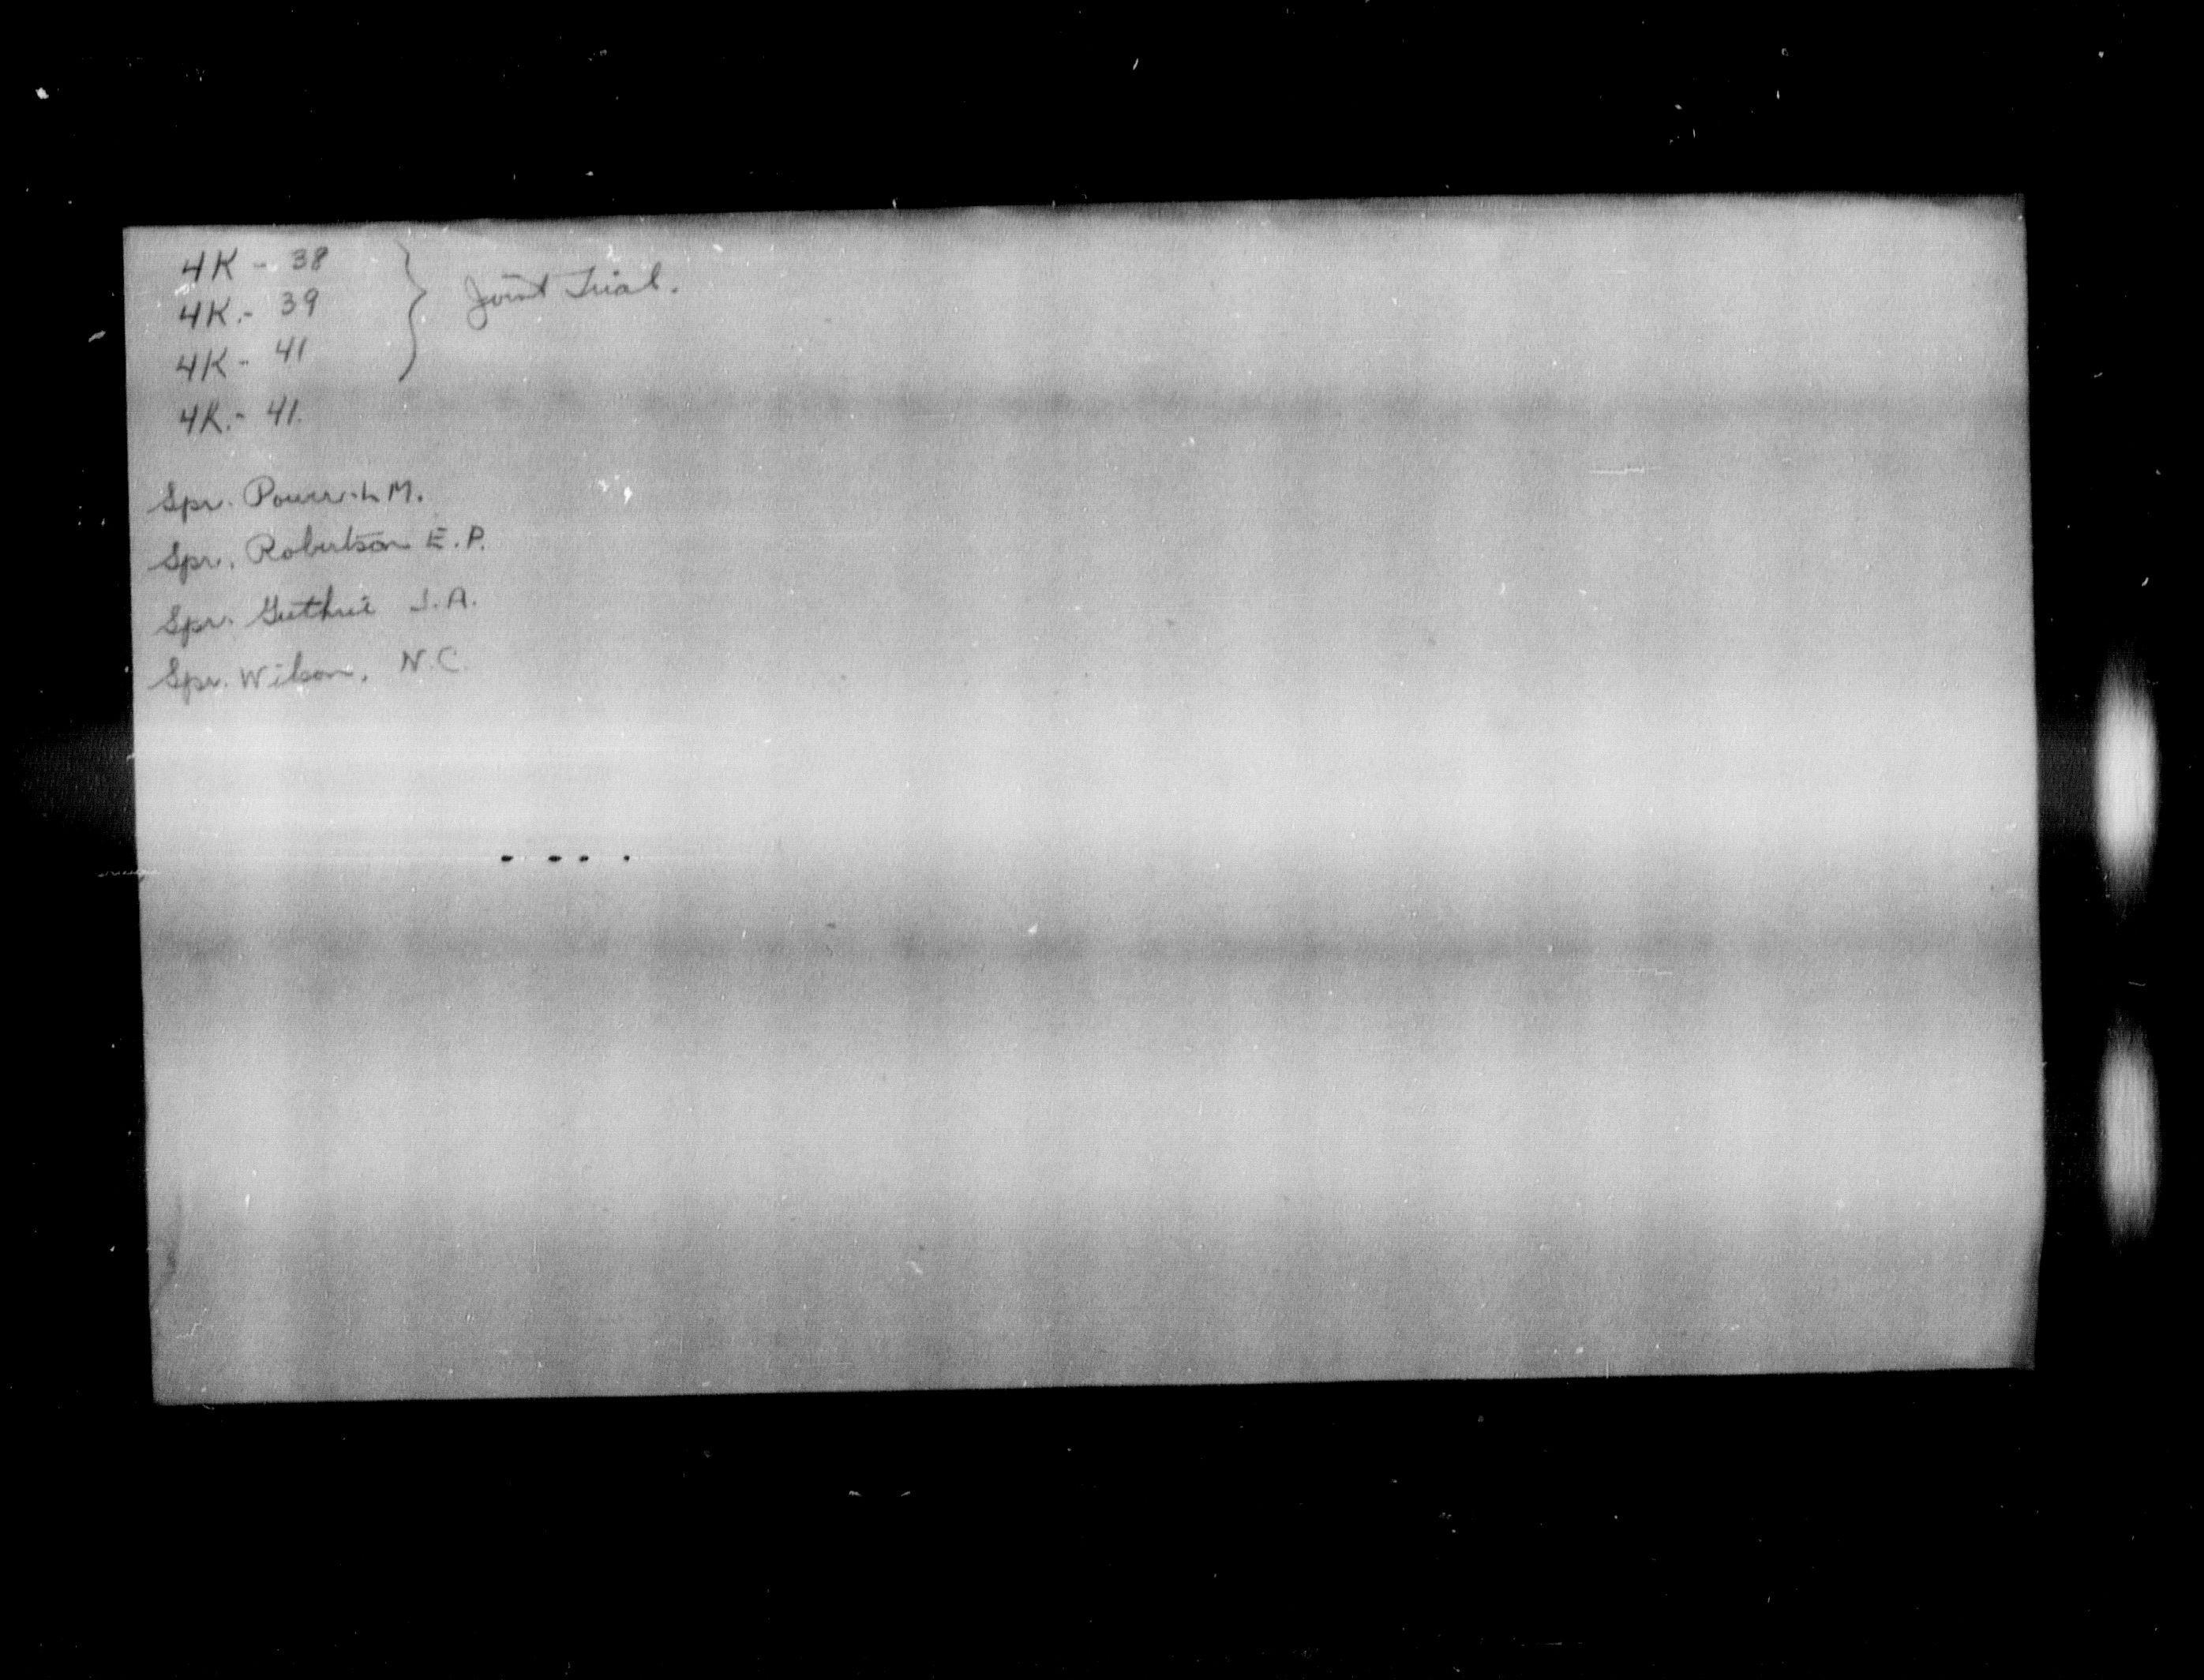 4K - 38
4K. - 39 } Joint Trial.
4K - 41
4K. - 41.
Spr. Power L M.
Spr. Robertson E. P.
Spr. Guthrie J. A.
Spr. Wilson, N. C.